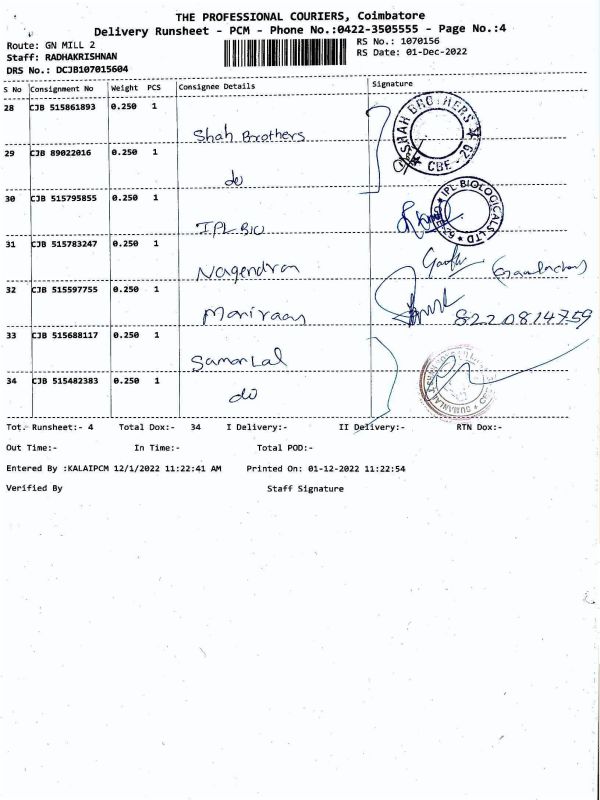 THE PROFESSIONAL COURIERS, Coimbatore
Delivery Runsheet - PCM - Phone No.:0422-3505555 - Page No.:4
Route: GN MILL 2
RS No.: 1070156
Staff: RADHAKRISHNAN
RS Date: 01-Dec-2022
DRS No.: DCJB107015604
S No Consignment No Weight PCS Consignee Details Signature
28 CJB 515861893 0.250 1
Shah Brothers
SHAH BROTHERS CBE - 29
29 CJB 89022016 0.250 1
do
30 CJB 515795855 0.250 1
IPL Bio
IPL-BIOLOGICALS LTD
31 CJB 515783247 0.250 1
Nagendran
32 CJB 515597755 0.250 1
Maniraaj
8220814759
33 CJB 515688117 0.250 1
Saman Lal
34 CJB 515482383 0.250 1
do
Tot. Runsheet:- 4 Total Dox:- 34 I Delivery:- II Delivery:- RTN Dox:-
Out Time:- In Time:- Total POD:-
Entered By :KALAIPCM 12/1/2022 11:22:41 AM Printed On: 01-12-2022 11:22:54
Verified By Staff Signature